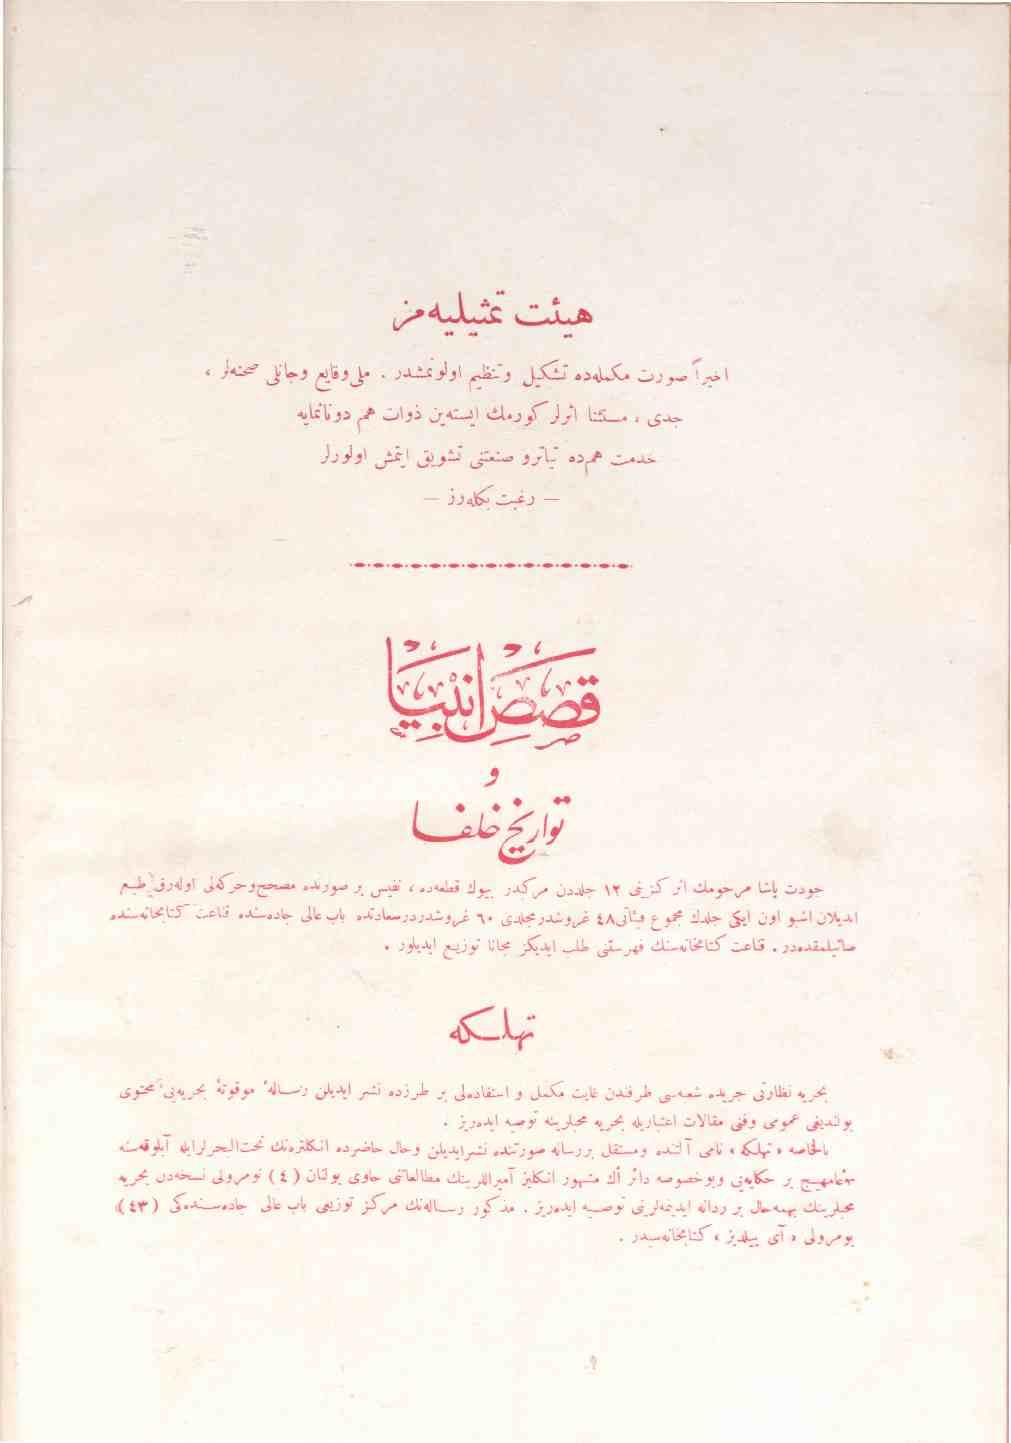 هیئت تمثیلیه‌مز
اخیراً صورت مکمله‌ده تشکیل وتنظیم اولونمشدر . ملی وقایع وجانلی صحنه‌لر ،
جدی ، مستثنا اثرلر کورمك ایسته‌ین ذوات هم دونانمایه
خدمت هم‌ده تیاترو صنعتنی تشویق ایتمش اولورلر
— رغبت بکله‌رز —
قصص انبیا
و
تواریخ خلفا
جودت پاشا مرحومك اثر کزینی ١٢ جلددن مرکبدر بیوك قطعه‌ده ، نفیس بر صورتده مصحح وحرکه‌لی اوله‌رق طبع
ایدیلان اشبو اون ایکی جلدك مجموع فیئاتی ٤٨ غروشدر مجلدی ٦٠ غروشدر درسعادتده باب عالی جاده‌سنده قناعت کتابخانه‌سنده
صاتیلمقده‌در . قناعت کتابخانه‌سنك فهرستنی طلب ایدیکز مجانا توزیع ایدیلور .
تهلکه
بحریه نظارتی جریده شعبه‌سی طرفندن غایت مکمل و استفاده‌لی بر طرزده نشر ایدیلن رساله‌ٔ موقوتهٔ بحریه‌یی محتوی
بولندیغی عمومی وفنی مقالات اعتباریله بحریه محبلرینه توصیه ایده‌ریز .
بالخاصه « تهلکه » نامی آلتنده ومستقل بررساله صورتنده نشرایدیلن وحال حاضرده انکلتره‌نك تحت‌البحرلرایله آبلوقه‌سنه
مهیج بر حکایه‌یی وبوخصوصه دائر اك مشهور انکلیز آمیراللرینك مطالعاتنی حاوی بولنان ( ٤ ) نومرولی نسخه‌دن بحریه
محبلرینك بهمه‌حال بر ردانه ایدینمه‌لرینی توصیه ایده‌ریز . مذکور رساله‌نك مرکز توزیعی باب عالی جاده‌سنده‌کی ( ٤٣ )
نومرولی « آی ییلدیز » کتابخانه‌سیدر .